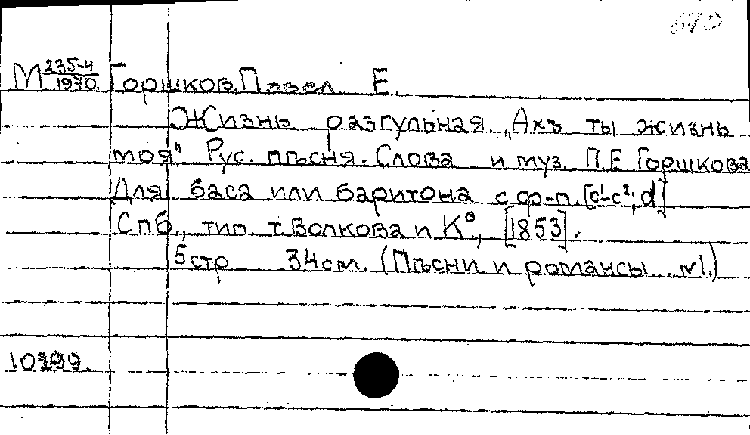 М 235-4/1970 Горшков, Павел Е.
Жизнь разгульная. „Ахъ ты жизнь
моя“. Рус. пѣсня. Слова и муз. П.Е. Горшкова
Для баса или баритона с ф-п. [c¹-c²; d]
Спб., тип. т. Волкова и К⁰, [1853].
5 стр 34 см. (Пѣсни и романсы. №1.)